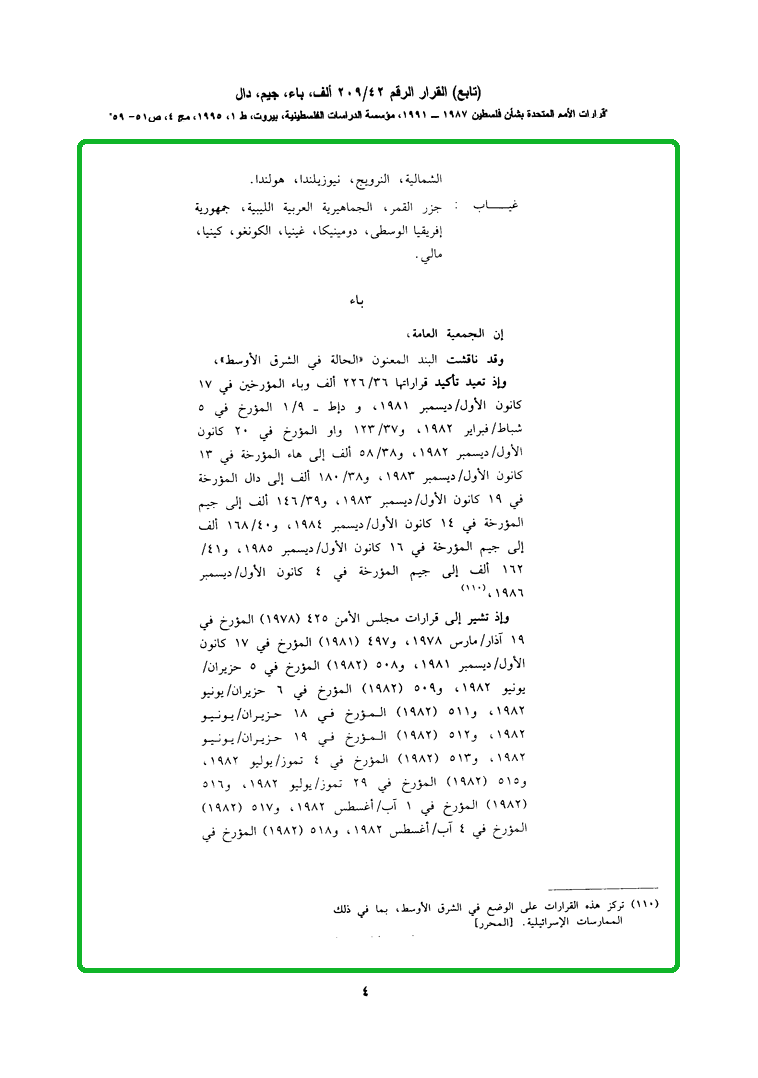 (تابع) القرار الرقم ٢٠٩/٤٢ ألف، باء، جيم، دال
"قرارات الأمم المتحدة بشأن فلسطين ١٩٨٧ ــ ١٩٩١، مؤسسة الدراسات الفلسطينية، بيروت، ط ١، ١٩٩٥، مج ٤، ص٥١- ٥٩"
الشمالية، النرويج، نيوزيلندا، هولندا.
غيـــاب : جزر القمر، الجماهيرية العربية الليبية، جمهورية
إفريقيا الوسطى، دومينيكا، غينيا، الكونغو، كينيا،
مالي.
باء
إن الجمعية العامة،
وقد ناقشت البند المعنون «الحالة في الشرق الأوسط»،
وإذ تعيد تأكيد قراراتها ٢٢٦/٣٦ ألف وباء المؤرخين في ١٧
كانون الأول/ديسمبر ١٩٨١، و دإط ـ ١/٩ المؤرخ في ٥
شباط/فبراير ١٩٨٢، و١٢٣/٣٧ واو المؤرخ في ٢٠ كانون
الأول/ديسمبر ١٩٨٢، و٥٨/٣٨ ألف إلى هاء المؤرخة في ١٣
كانون الأول/ديسمبر ١٩٨٣، و١٨٠/٣٨ ألف إلى دال المؤرخة
في ١٩ كانون الأول/ديسمبر ١٩٨٣، و١٤٦/٣٩ ألف إلى جيم
المؤرخة في ١٤ كانون الأول/ديسمبر ١٩٨٤، و١٦٨/٤٠ ألف
إلى جيم المؤرخة في ١٦ كانون الأول/ديسمبر ١٩٨٥، و٤١/
١٦٢ ألف إلى جيم المؤرخة في ٤ كانون الأول/ديسمبر
١٩٨٦،(١١٠)
وإذ تشير إلى قرارات مجلس الأمن ٤٢٥ (١٩٧٨) المؤرخ في
١٩ آذار/مارس ١٩٧٨، و٤٩٧ (١٩٨١) المؤرخ في ١٧ كانون
الأول/ديسمبر ١٩٨١، و٥٠٨ (١٩٨٢) المؤرخ في ٥ حزيران/
يونيو ١٩٨٢، و٥٠٩ (١٩٨٢) المؤرخ في ٦ حزيران/يونيو
١٩٨٢، و٥١١ (١٩٨٢) المؤرخ في ١٨ حزيران/يونيو
١٩٨٢، و٥١٢ (١٩٨٢) المؤرخ في ١٩ حزيران/يونيو
١٩٨٢، و٥١٣ (١٩٨٢) المؤرخ في ٤ تموز/يوليو ١٩٨٢،
و٥١٥ (١٩٨٢) المؤرخ في ٢٩ تموز/يوليو ١٩٨٢، و٥١٦
(١٩٨٢) المؤرخ في ١ آب/أغسطس ١٩٨٢، و٥١٧ (١٩٨٢)
المؤرخ في ٤ آب/أغسطس ١٩٨٢، و٥١٨ (١٩٨٢) المؤرخ في
(١١٠) تركز هذه القرارات على الوضع في الشرق الأوسط، بما في ذلك
الممارسات الإسرائيلية. [المحرر]
٤